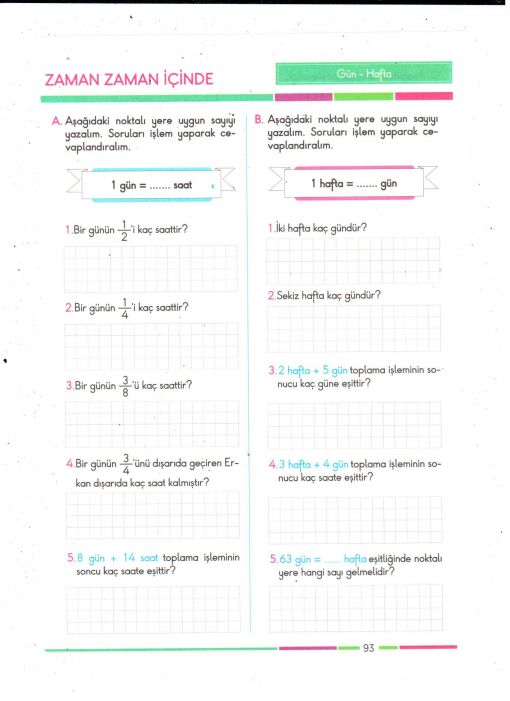 ZAMAN ZAMAN İÇİNDE
Gün - Hafta
A. Aşağıdaki noktalı yere uygun sayıyı
yazalım. Soruları işlem yaparak ce-
vaplandıralım.
1 gün = ....... saat
1.Bir günün 1/2'i kaç saattir?
2.Bir günün 1/4'i kaç saattir?
3.Bir günün 3/8'ü kaç saattir?
4.Bir günün 3/4'ünü dışarıda geçiren Er-
kan dışarıda kaç saat kalmıştır?
5.8 gün + 14 saat toplama işleminin
soncu kaç saate eşittir?
B. Aşağıdaki noktalı yere uygun sayıyı
yazalım. Soruları işlem yaparak ce-
vaplandıralım.
1 hafta = ....... gün
1.İki hafta kaç gündür?
2.Sekiz hafta kaç gündür?
3.2 hafta + 5 gün toplama işleminin so-
nucu kaç güne eşittir?
4.3 hafta + 4 gün toplama işleminin so-
nucu kaç saate eşittir?
5.63 gün = ...... hafta eşitliğinde noktalı
yere hangi sayı gelmelidir?
93